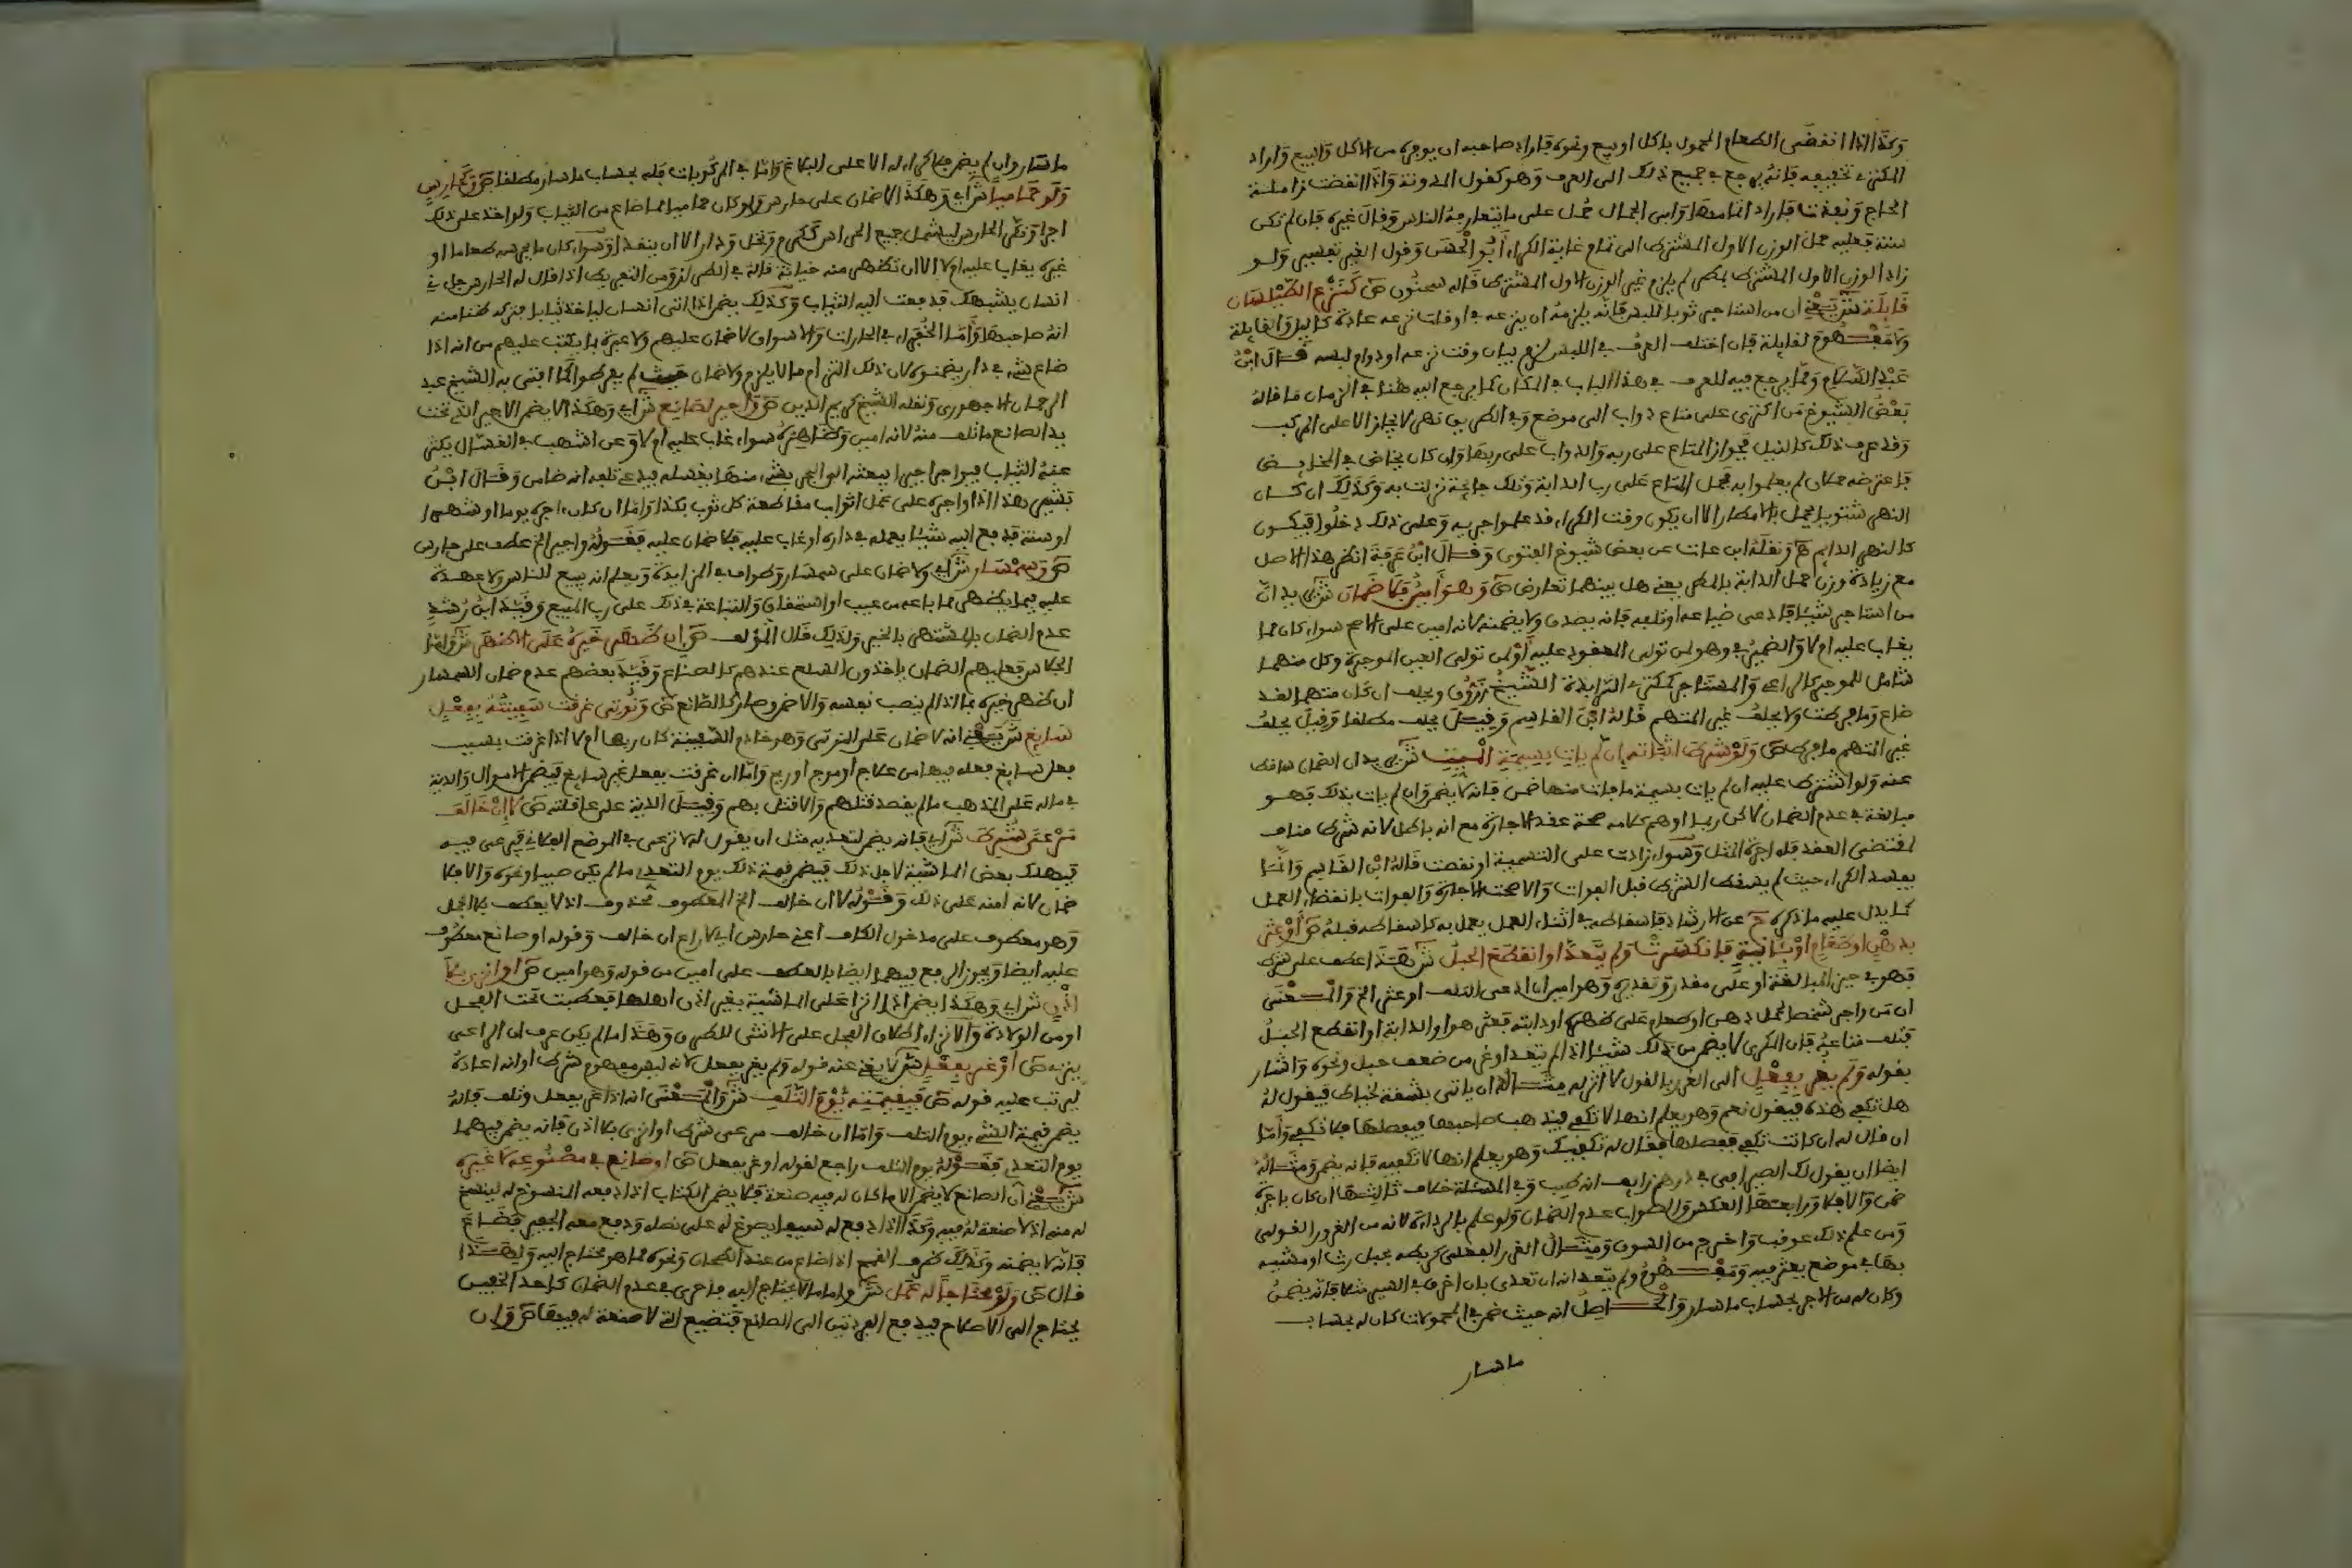 وكذا اذا انقضى الطعام المحمول باكل او بيع ونحوه فاراد صاحبه ان يوجره من الاكل والبيع واراد
المكتري تخفيفه فانه يرجع في جميع ذلك الى العرف وهو كقول المدونة واذا انقضت زاملة
الحاج ونفدت فاراد اتمامها وابى الجمال حمل على ما يتعارفه الناس وقال غيره فان لم تكن
سنة فعليه حمل الوزن الاول المشترط الى تمام غاية الكراء ابو الحسن وقول الغير تفسير ولو
زاد الوزن الاول المشترط بمطر لم يلزم غير الوزن الاول المشترط قاله سحنون ص كنزع الطيلسان
قايلة ش يعني ان من استاجر ثوبا للبس فانه يلزمه ان ينزعه في اوقات نزعه عادة كالليل والقايلة
ولا مفهوم لقايلة فان اختلف العرف في اللبس لزم بيان وقت نزعه او دوام لبسه قال ابن
عبد السلام ومما يرجع فيه للعرف في هذا الباب في المكان كما يرجع اليه هنا في الزمان ما قاله
بعض الشيوخ من اكترى على متاع دواب الى موضع وفي الطريق نهر لا يجاز الا على المركب
وقد عرف ذلك كالنيل فجواز المتاع على ربه والدواب على ربها وان كان يخاض في المخايض
فاعترضه حملان لم يعلموا به فحمل المتاع على رب الدابة وتلك جايحة نزلت به وكذلك ان كان
النهر شتويا يحمل بالامطار الا ان يكون وقت الكراء قد علموا جريه وعلى ذلك دخلوا فيكون
كالنهر الدايم ونقله ابن عات عن بعض شيوخ الفتوى وقال ابن عرفة انظر هذا الاصل
مع زيادة وزن حمل الدابة بالمطر يعني هل بينهما تعارض ص وهو امين فلا ضمان ش يريد ان
من استاجر شيئا فادعى ضياعه او تلفه فانه يصدق ولا يضمنه لانه امين على الاصح سواء كان مما
يغاب عليه ام لا والضمير في وهو لمن تولى المعقود عليه او لمن تولى العين الموجرة وكل منهما
شامل للموجر كالراعي والمستاجر كمكتري الدابة الشيخ زروق ويحلف ان كان متهما لقد
ضاع وما فرطت ولا يحلف غير المتهم قاله ابن القاسم وقيل يحلف مطلقا وقيل يحلف
غير المتهم ما فرط ص ولو شرط اثباته ان لم يات بسمة الميت ش يريد ان الضمان ساقط
عنه ولو اشترط عليه ان لم يات بسمة ما مات منها ضمن فانه لا يضمن وان لم يات بذلك فهو
مبالغة في عدم الضمان لاكن ربما اوهم كلامه صحة عقد الاجارة مع انه باطل لانه شرط مناف
لمقتضى العقد فله اجرة المثل وسواء زادت على التسمية او نقصت قاله ابن القاسم وانما
يفسد الكراء حيث لم يسقط الشرط قبل الفوات والا صحت الاجارة والفوات بانقضاء العمل
كما يدل عليه ما ذكره عن الارشاد فاسقاطه في اثناء العمل يعمل به كاسقاطه قبله ص او عثر
بدهن او طعام او بآنية فانكسرت ولم يتعد او انقطع الحبل ش هذا عطف على شرط
فهو في حيز المبالغة او على مقدر وتقديره وهو امين ان ادعى التلف او عثر الخ والمعنى
ان من واجر شخصا لحمل دهن او طعام على ظهره او دابته فعثر هو او الدابة او انقطع الحبل
فتلف متاعه فان المكري لا يضمن من ذلك شيئا اذا لم يتعد او غر من ضعف حبل ونحوه واشار
بقوله ولم يغر بفعل الى الغرر بالقول لا اثر له مثاله ان ياتي بشقة لخياط فيقول له
هل تكفي هذه فيقول نعم وهو يعلم انها لا تكفي فيذهب صاحبها فيفصلها فلا تكفي واما
ان قال له ان كانت تكفي ففصلها فقال له تكفيك وهو يعلم انها لا تكفيه فانه يضمن ومثاله
ايضا ان يقول لك الصيرفي في درهم زايف انه طيب وفي المسئلة خلاف ثالثها ان كان باجرة
ضمن والا فلا ورابعها العكس والصواب عدم الضمان ولو علم بالرداءة لانه من الغرور القولي
ومن علم ذلك عوقب واخرج من السوق ومثال الغرر الفعلي كربطه بحبل رث او مشيه
بها في موضع يعثر فيه ومفهوم ولم يتعد انه ان تعدى بان اخرق في السير مثلا فانه يضمن
وكان له من الاجر بحساب ما سار والحاصل انه حيث ضمن في المحمولات كان له بحساب
ما سار
ما سار وان لم يضمن فلا كراء له الا على البلاغ واما في المركوبات فله بحساب ما سار مطلقا ص وحارس
ولو حماميا ش اي وهكذا لا ضمان على حارس ولو كان حماميا لما ضاع من الثياب ولو اخذ على ذلك
اجرا ونكر الحارس ليشمل جميع الحراس ككرم ونخل ودار الا ان يتعدا وسواء كان ما يحرسه طعاما او
غيره يغاب عليه ام لا الا ان تظهر منه خيانة قاله في الطرر ومن التفريط اذا قال له الحارس جل في
انسان يشبهك فدفعت اليه الثياب وكذلك يضمن اذا اتى انسان لياخذ ثيابا فتركه ظنا منه
انه صاحبها واما الخفراء في الحارات والاسواق لا ضمان عليهم ولا عبرة بما يكتب عليهم من انه اذا
ضاع شيء في دار يضمنوه لان ذلك التزام ما لا يلزم ولا ضمان حيث لم يفرطوا كما افتى به الشيخ عبد
الرحمان الاجهوري ونقله الشيخ كريم الدين ص واجير لصانع ش اي وهكذا لا يضمن الاجير الذي تحت
يد الصانع ما تلف منه لانه امين وظاهره سواء غاب عليه ام لا وعن اشهب في الغسال يكثر
عنده الثياب فيواجر اجيرا يبعثه الى البحر بشيء منها يغسله فيدعي تلفه انه ضامن وقال ابن
بشير هذا اذا واجره على عمل اثواب مقاطعة كل ثوب بكذا واما ان كان اجيره يوما او شهرا
او سنة فدفع اليه شيئا يعمله في داره او غاب عليه فلا ضمان عليه فقوله واجير الخ عطف على حارس
ص وسمسار ش اي ولا ضمان على سمسار وطواف في المزايدة ويعلم انه يبيع للناس ولا عهدة
عليه فيما يظهر مما باعه من عيب او استحقاق والتباعة في ذلك على رب المبيع وقيد ابن رشد
عدم الضمان بالمشتهر بالخير ولذلك قال المؤلف ص ان ظهر خيره على الاظهر ش واما
الجلاس فعليهم الضمان ياخذون السلع عندهم كالصناع وقيد بعضهم عدم ضمان السمسار
ان ظهر خيره بما اذا لم ينصب نفسه والا ضمن وصار كالصانع ص ونوتي غرقت سفينته بفعل
سايغ ش يعني انه لا ضمان على النوتي وهو خادم السفينة كان ربها ام لا اذا غرقت بسبب
فعل سايغ فعله فيها من علاج او موج او ريح واما ان غرقت بفعل غير سايغ فيضمن الاموال والدية
في ماله على المذهب ما لم يقصد قتلهم والا قتل بهم وقيل الدية على عاقلته ص لا ان خالف
مرعى شرط ش اي فانه يضمن لتعديه مثل ان يقول له لا ترعى في الموضع الفلاني فيرعى فيه
فيهلك بعض الماشية لاجل ذلك فيضمن قيمة ذلك يوم التعدي ما لم يكن صبيا ونحوه والا فلا
ضمان لانه امنه على ذلك وقوله لا ان خالف الخ المعطوف محذوف اذ لا يعطف بلا الجمل
وهو معطوف على مدخول الكاف اعني حارس اي لا راع ان خالف وقوله او صانع معطوف
عليه ايضا ويجوز الرفع فيهما ايضا بالعطف على امين من قوله وهو امين ص او انزى بلا
اذن ش اي وهكذا يضمن اذا انزا على الماشية بغير اذن اهلها فعطبت تحت الفحل
او من الولادة والانزاء اطلاق الفحل على الانثى للطرق وهذا ما لم يكن عرف ان الراعي
ينزي ص او غر بفعل ش لا يغني عنه قوله ولم يغر بفعل لانه ليس مفهوم شرط او انه اعاده
ليرتب عليه قوله ص فبقيمته يوم التلف ش والمعنى انه اذا غر بفعل وتلف فانه
يضمن قيمة الشيء يوم التلف واما ان خالف مرعى شرط او انزى بلا اذن فانه يضمن فيهما
يوم التعدي فقوله يوم التلف راجع لقوله او غر بفعل ص او صانع في مصنوعه لا غيره
ش يعني ان الصانع لا يضمن الا ما كان له فيه صنعة فلا يضمن الكتاب اذا دفعه المنسوخ له لينسخ
له منه اذ لا صنعة له فيه وكذا اذا دفع له سيفا يصوغ له على نصله ودفع معه الجفير فضاع
فانه لا يضمنه وكذلك ظرف القمح اذا ضاع من عند الطحان ونحوه مما هو محتاج اليه ولهذا
قال ص ولو محتاجا له عمل ش واما ما لا يحتاج اليه فاحرى في عدم الضمان كاحد الخفين
يحتاج الى الاصلاح فيدفع الفردتين الى الصانع فتضيع التي لا صنعة له فيها ص وان